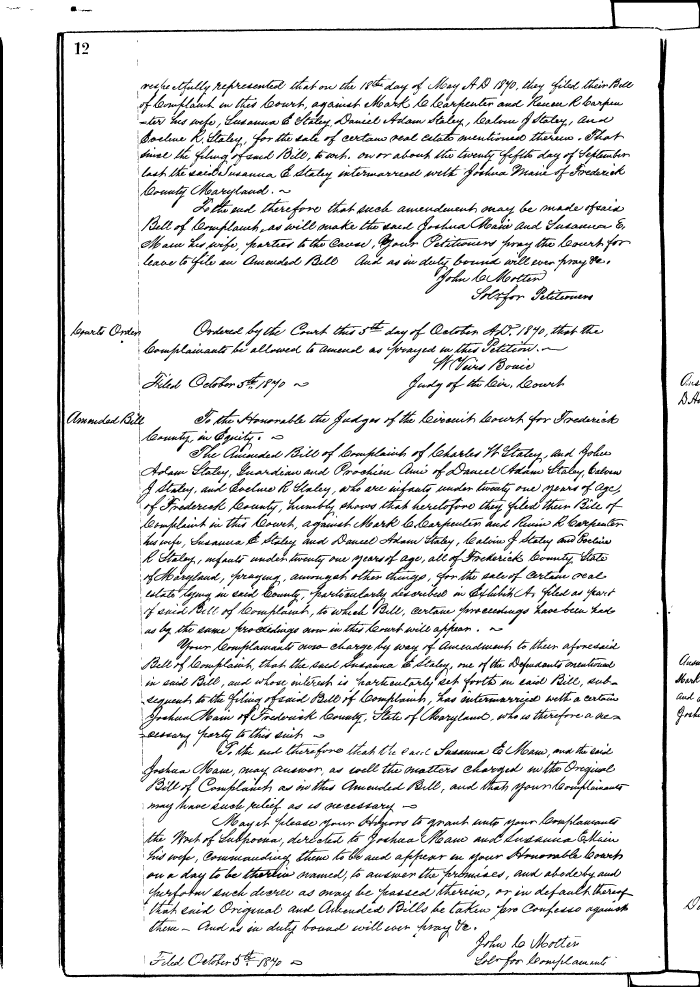 12
respectfully represented that on the 18th day of May A.D 1870, they filed their Bill
of Complaint in this Court, against Mark C Carpenter and R Carpen
-ter his wife, Susanna E Staley, Daniel Adam Staley, Calvin J Staley, and
Eveline R. Staley, for the sale of certain real estate mentioned therein. That
since the filing of said Bill, to wit, on or about the twenty fifth day of September
last the said Susanna E Staley intermarried with Joshua Main of Frederick
County Maryland. ~
To the end therefore that such amendment may be made of said
Bill of Complaint, as will make the said Joshua Main and Susanna E,
Main his wife, parties to the cause, Your Petitioners pray the Court for
leave to file an Amended Bill And as in duty bound will ever pray &c.
John C Motter
Solr for Petitioners
Courts Order
Ordered by the Court this 5th day of October A.D. 1870, that the
Complainants be allowed to amend as prayed in this Petition. ~
W Veirs Bouic
Filed October 5th 1870 ~ Judg of the Cir. Court
Amended Bill
To the Honorable the Judges of the Circuit Court for Frederick
County, in Equity. ~
The Amended Bill of Complaint of Charles W Staley, and John
Adam Staley, Guardian and Prochien Ami of Daniel Adam Staley, Calvin
J Staley, and Eveline R Staley, who are infants under twenty one years of age,
of Frederick County, humbly shows that heretofore they filed their Bill of
Complaint in this Court, against Mark C. Carpenter and R Carpenter
his wife, Susanna E Staley and Daniel Adam Staley, Calvin J Staley and Eveline
R Staley, infants under twenty one years of age, all of Frederick County, State
of Maryland, praying, amongst other things, for the sale of certain real
estate lying in said County, particularly described in Exhibit A, filed as part
of said Bill of Complaint, to which Bill, certain proceedings have been had
as by the same proceedings now in this Court will appear. ~
Your Complainants now charge by way of Amendment to their aforesaid
Bill of Complaint, that the said Susanna E Staley, one of the Defendants mentioned
in said Bill, and whose interest is particularly set forth in said Bill, sub-
sequent to the filing of said Bill of Complaint, has intermarried with a certain
Joshua Main of Frederick County, State of Maryland, who is therefore a ne-
-cessary party to this suit ~
To the end therefore that the said Susanna E Main, and the said
Joshua Main, may answer, as well the matters charged in the Original
Bill of Complaint as in this Amended Bill, and that your Complainants
may have such relief as is necessary ~
May it please your Honors to grant unto your Complainants
the Writ of Subpoena, directed to Joshua Main and Susanna E Main
his wife, commanding them to be and appear in your Honorable Court
on a day to be therein named, to answer the premises, and abode by and
perform such decree as may be passed therein, or in default thereof
that said Original and Amended Bills be taken pro Confesso against
them - And as in duty bound will ever pray &c.
John C Motter
Filed October 5th 1870 ~ Solr for Complainants